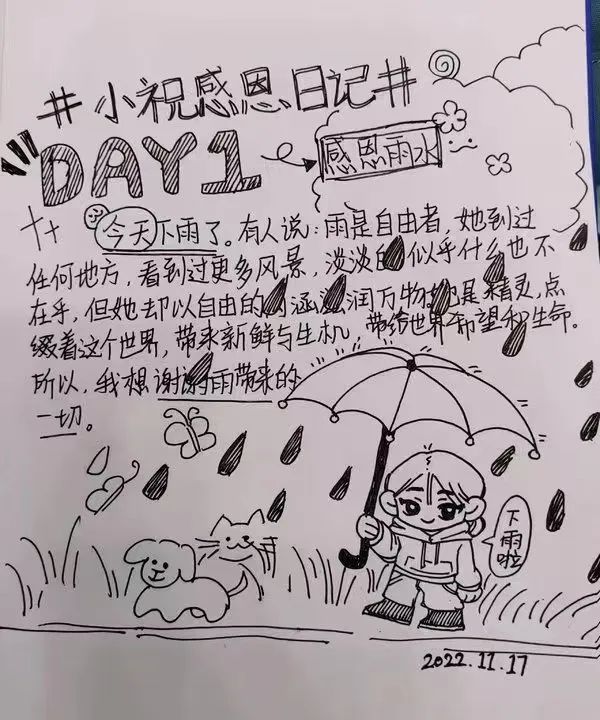 #小祝感恩日记#
DAY1
感恩雨水
今天下雨了。有人说:雨是自由者,她到过
任何地方,看到过更多风景,淡淡的似乎什么也不
在乎,但她却以自由的内涵滋润万物。她是精灵,点
缀着这个世界,带来新鲜与生机,带给世界希望和生命。
所以,我想谢谢雨带来的
一切。
下雨啦
2022.11.17